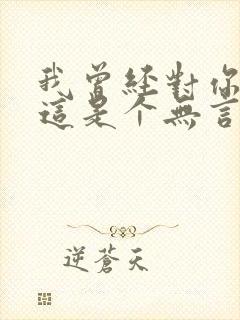 我曾經對你
這是个無言
逆蒼天